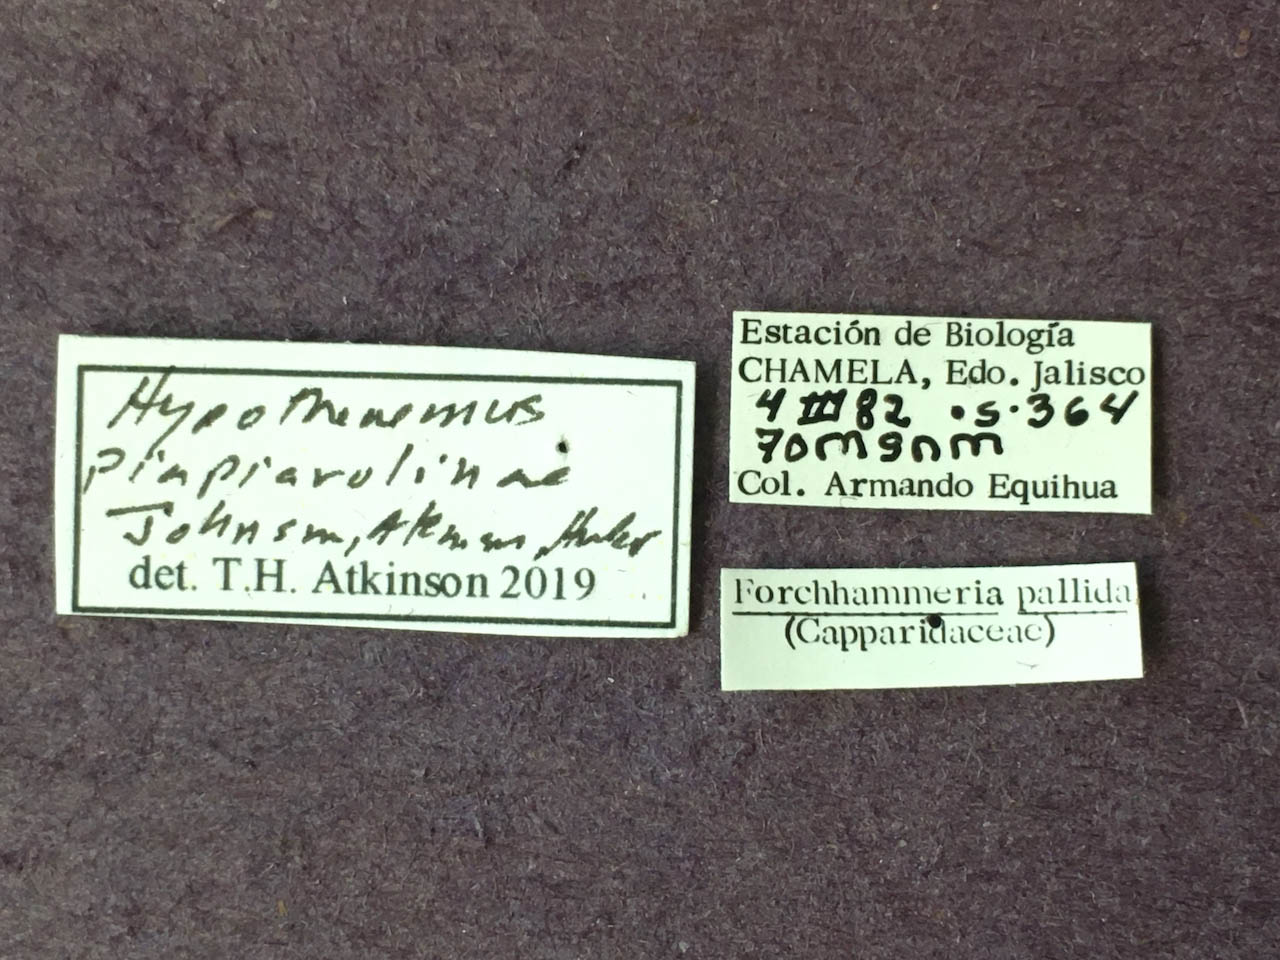 Hypothenemus
piapiarolinae
Johnson, Atkinson, Hulcr
det. T.H. Atkinson 2019
Estación de Biología
CHAMELA, Edo. Jalisco
4 III 82 .S.364
70msnm
Col. Armando Equihua
Forchhammeria pallida
(Capparidaceae)